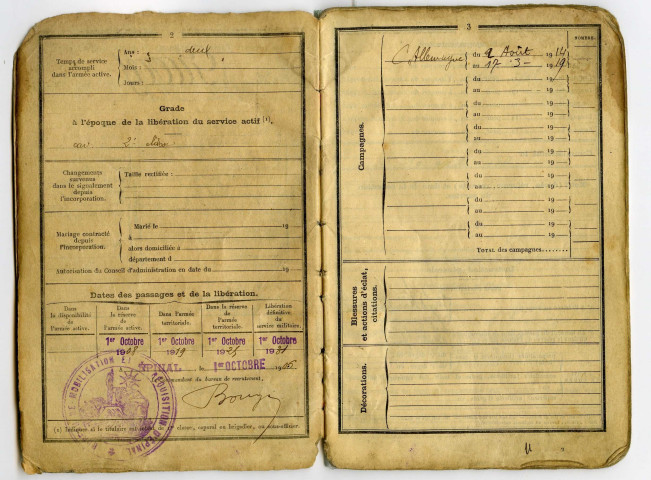 2
Temps de service
accompli
dans l'armée active.
Ans : deux
Mois :
Jours :
Grade
à l'époque de la libération du service actif (1).
2e
Changements
survenus
dans le signalement
depuis
l'incorporation.
Taille rectifiée :
Mariage contracté
depuis
l'incorporation.
Marié le 19
à
alors domiciliée à
département d
Autorisation du Conseil d'administration en date du 19
Dates des passages et de la libération.
Dans
la disponibilité
de
l'armée active.
Dans
la réserve
de
l'armée active.
Dans l'armée
territoriale.
Dans la réserve
de
l'armée
territoriale.
Libération
définitive
du
service militaire.
1er Octobre 1er Octobre 1er Octobre 1er Octobre
1908 1919 1925 1931
EPINAL, le 1er OCTOBRE 1906
Le Commandant du bureau de recrutement,
MOBILISATION ET RÉQUISITION D'ÉPINAL
3
NOMBRE.
Campagnes.
C. Allemagne
du 2 Août 1914
au 17 - 3 - 1919
du 19
au 19
du 19
au 19
du 19
au 19
du 19
au 19
du 19
au 19
du 19
au 19
du 19
au 19
TOTAL des campagnes.......
Blessures
et actions d'éclat,
citations.
Décorations.